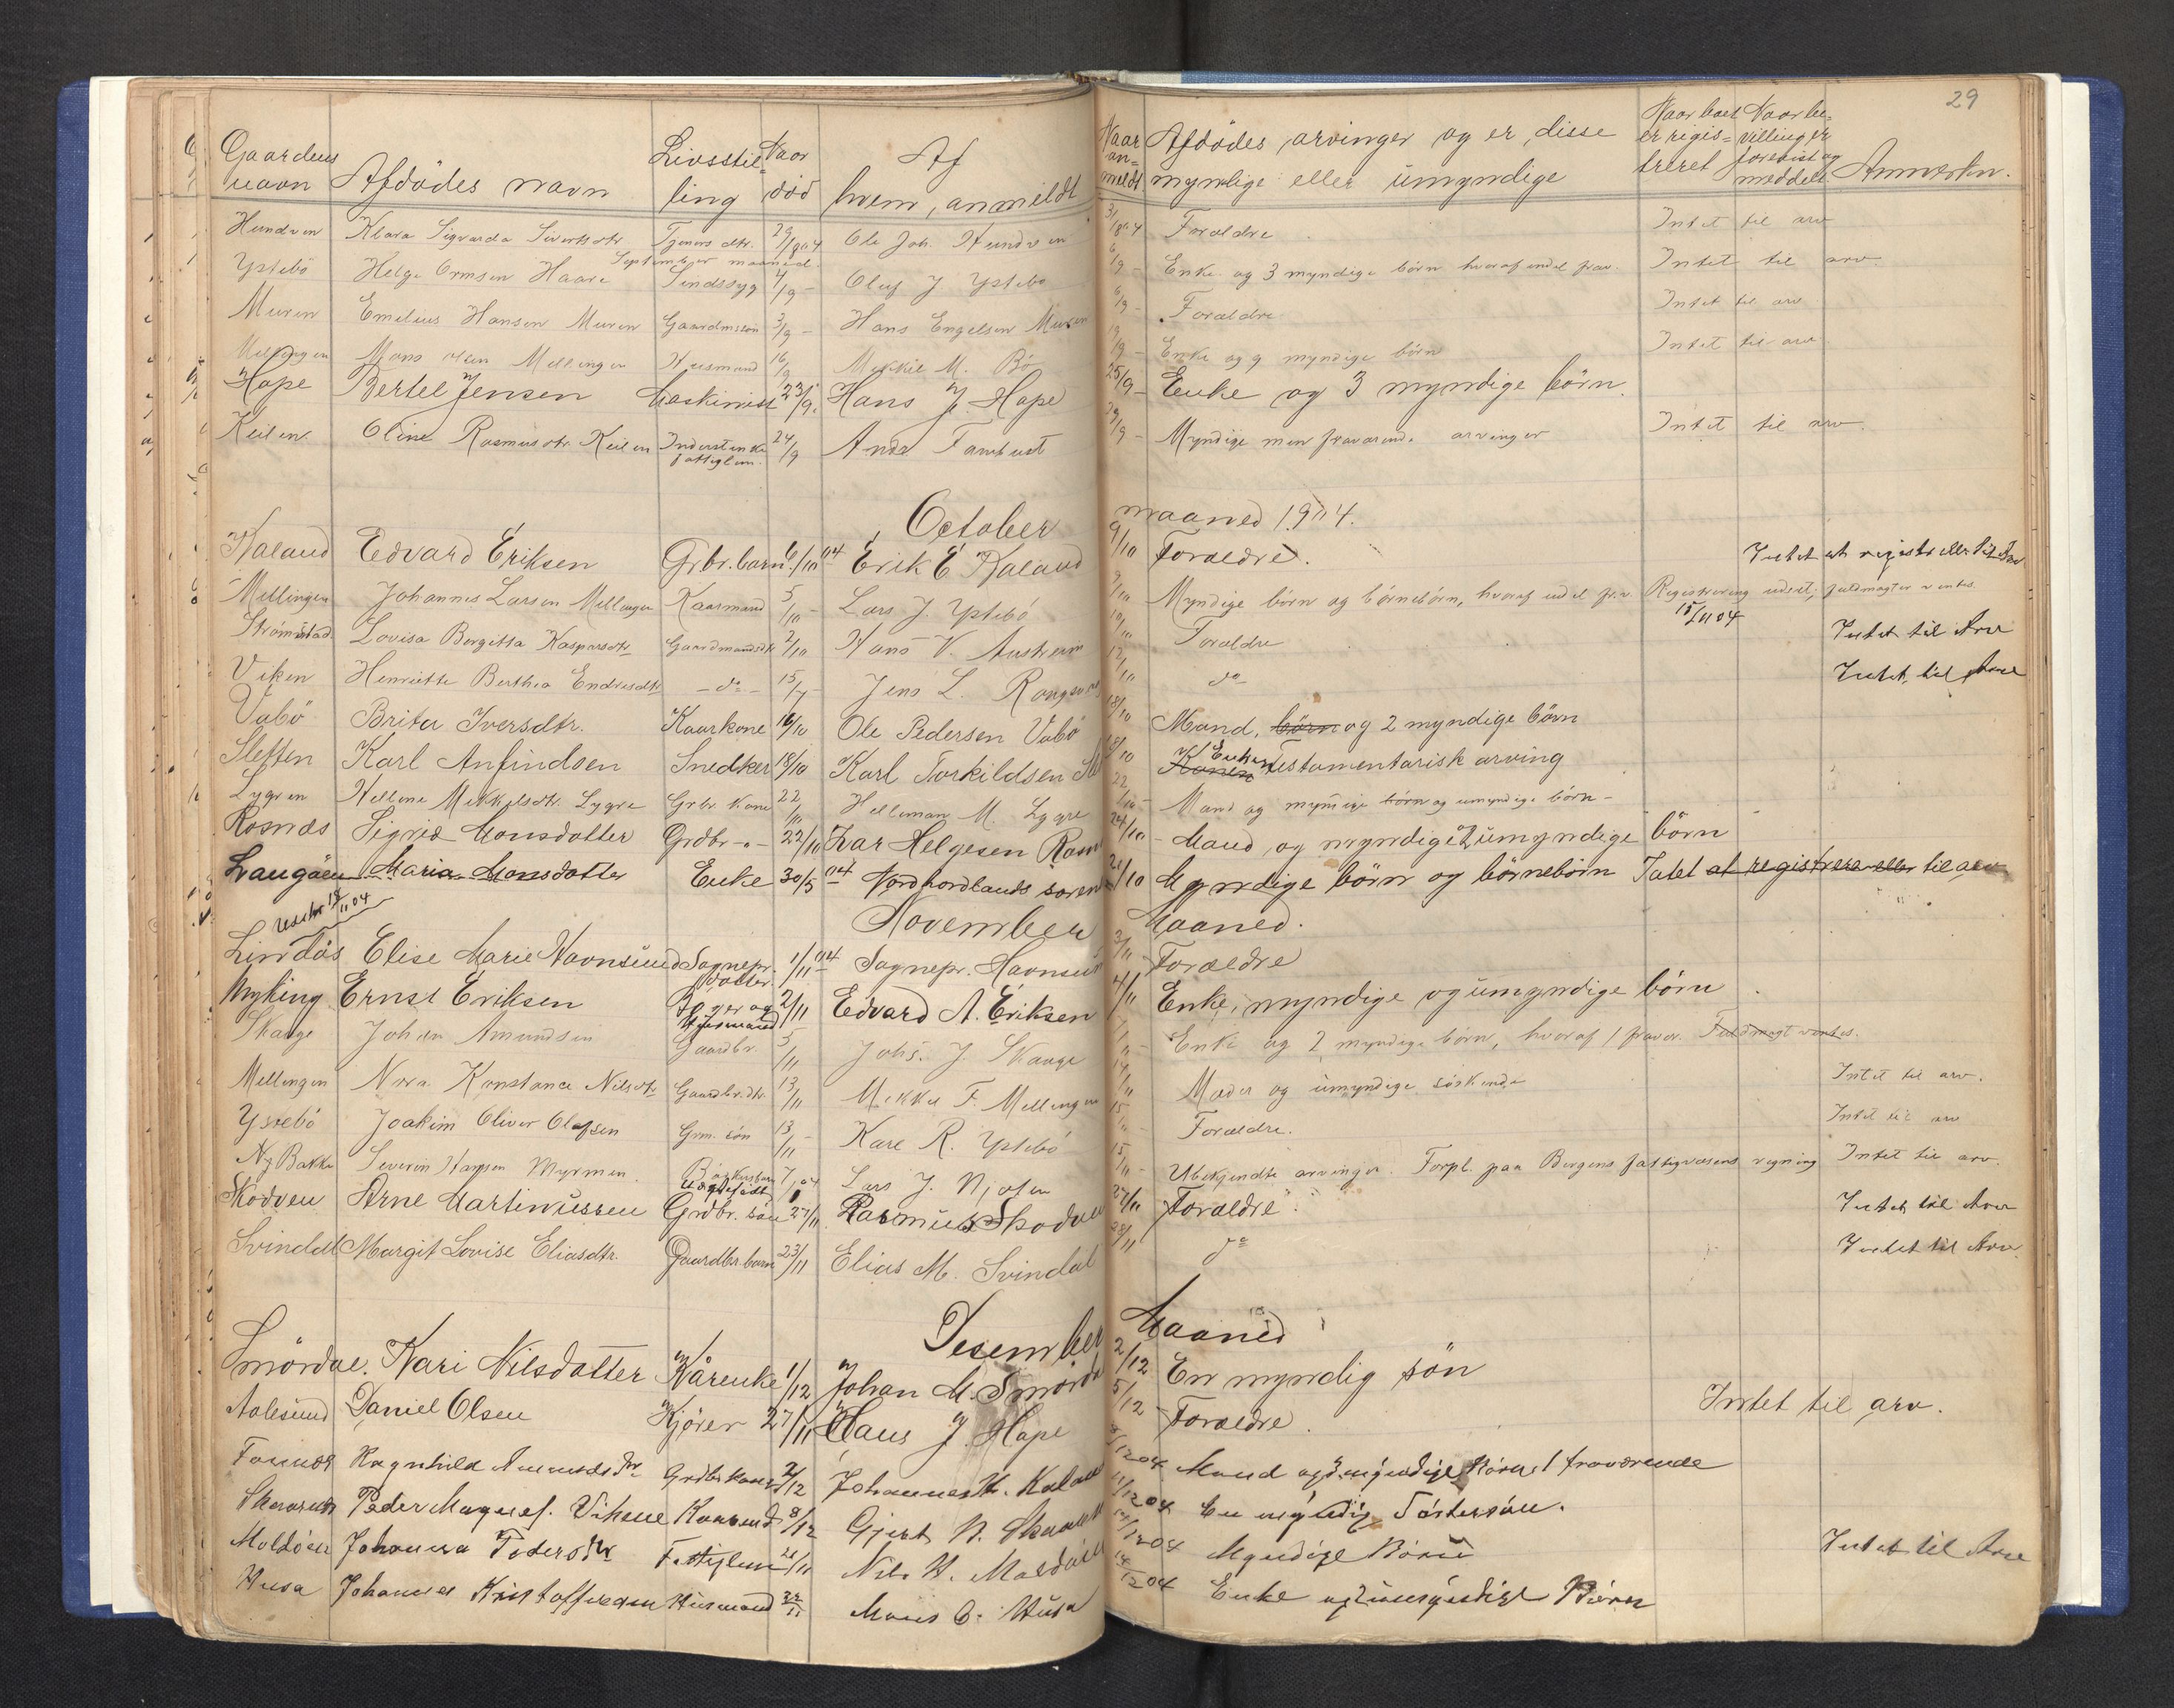 29
Gaardens navn | Afdödes navn | Livsstilling | Naar död | Af hvem anmeldt | Naar anmeldt | Afdödes arvinger og er disse myndige eller umyndige | Naar boet er registreret | Naar bevilling er forevist og meddelt | Anmerkn.
Hundven | Klara Sigvarda Sivertsdtr | Tjeners dtr. | 29/8 04 | Ole Joh. Hundven | 3/8 04 | Forældre | Intet til arv
September maaned.
Ystebö | Helge Ormsen Haare | Sindssyg | 4/9 - | Oluf J Ystebö | 6/9 - | Enke og 3 myndige börn hvoraf endel frav. | Intet til arv.
Muren | Emelius Hansen Muren | Gaardmssön | 3/9 - | Hans Engelsen Muren | 6/9 - | Forældre | Intet til arv
Mellingen | Mons Olsen Mellingen | Husmand | 16/9 | Mikkil M. Bö | 19/9 - | Enke og 9 myndige börn | Intet til arv
Hope | Bertel Jensen | Maskinist | 23/9. | Hans J. Hope | 25/9 - | Enke og 3 myndige börn.
Keilen | Oline Rasmusdtr. Keilen | Inderstenke fattiglem. | 24/9 | Anders Fambust | 29/9 - | Myndige men fraværende arvinger | Intet til arv.
October maaned 1904.
Kaland | Edvard Eriksen | Grbr. barn | 6/10 04 | Erik E Kaland | 9/10 | Forældre. | Intet at registr eller til Arv
Mellingen | Johannes Larsen Mellingen | Kaarmand | 5/10 - | Lars J. Ystebö | 9/10 | Myndige börn og börnebörn, hvoraf endel frav. | Registrering udsat, fuldmagter ventes. 15/11 04
Strömstad | Lovisa Bergitta Kaspersdtr | Gaardmandsdtr | 2/10 | Hans V. Austrheim | 10/10 | Forældre | Intet til Arv
Viken | Henriette Berthea Endresdtr | - do - | 15/7 - | Jens L. Rongev | 12/10 | do | Intet til Arv
Vabö | Brita Iversdtr. | Kaarkone | 16/10 | Ole Pedersen Vabö | 18/10 | Mand, börn og 2 myndige börn
Sletten | Karl Anfindsen | Snedker | 18/10 | Karl Torkildsen Sle | 18/10 | Konen Enken Testamentarisk arving
Lygren | Hellene Mikkelsdtr. Lygre | Grbr kone | 22/10 | Helleman M. Lygre | 22/10 - | Mand og myndige börn og umyndige börn -
Rosnæs | Sigrid Monsdotter | Grdbr - " - | 22/10 | Lar Helgesen Rosn | 24/10 - | Mand og myndige & umyndige börn
Langöen | Maria Monsdotter | Enke | 30/5 04 | Nordhordlands soren | 21/10 | Myndige börn og börnebörn | Intet at registrere eller til arv
18/11 04
November Maaned.
Lindås | Elise Marie Havnsund | Sognepr. datter | 1/11 04 | Sognepr. Havnsun | 3/11 | Forældre
Myking | Ernst Eriksen | og Husmand | 2/11 | Edvard A. Eriksen | 4/11 | Enke, myndige og umyndige börn
Skauge | Johan Amundsen | Gaardbr. | 5/11 | Johs. J. Skauge | 7/11 - | Enke og 2 myndige börn, hvoraf 1 fravær. Fuldmagt ventes.
Mellingen | Nora Konstance Nilsdtr | Gaardbr.dtr. | 13/11 | Mikkel F. Mellingen | 14/11 | Moder og umyndige söskende | Intet til arv.
Ystebö | Joakim Oliver Olafsen | Grm. sön | 13/11 - | Karl R. Ystebö | 15/11 - | Forældre. | Intet til arv
Nj Bakke | Severin Hansen Myrmen. | ugift | 7/ 04 | Lars J. Njøten | 15/11 - | Ubekjendte arvinger. Forpl. paa Bergens fattigvæsens regning | Intet til arv.
Skodven | Arne Martinussen | Grdbr. sön | 27/11 | Rasmus Skodven | 27/11 | Forældre. | Intet til Arv
Svindal | Margit Lovise Eliasdtr. | Gaardbr barn | 23/11 | Elias M. Svindal | 28/11 | do | Intet til Arv.
Desember Maaned
Smördal. | Kari Nilsdotter | Kårenke | 1/12 | Johan M. Smörda | 2/12 | En myndig sön
Aalesund | Daniel Olsen | | 27/11 | Hans J. Hope | 5/12 - | Forældre. | Intet til arv.
Fonnes | Ragnhild Amundsdtr | Grdbr kone | 2/12 | Johannes H. Kaland | 8/12 04 | Mand og 3 myndige Börn, 1 fraværende
Peder Magnus. Vikene | Kaarmd | 8/12 | Gjert N. | 11/12 04 | En myndig Söstersön.
Moldöen | Johanna Pedersdtr | Fattiglem | 21/11 | Nils H. Moldöen | 12/12 04 | Myndige Börn | Intet til Arv
Husa | Johannes Kristoffersen | Husmand | 22/11 | Mons O. Husa | 14/12 04 | Enke og umyndige Börn